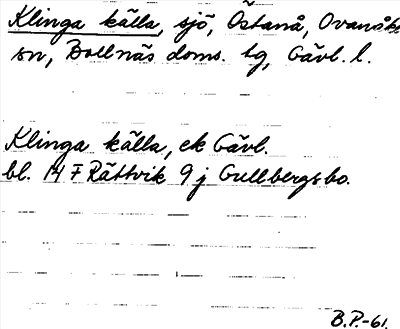 Klinga källa, sjö, Östanå, Ovanåkers
sn, Bollnäs doms. tg, Gävl. l.
Klinga källa, ek Gävl.
bl. 14 F Rättvik 9 j Gullbergsbo.
B.P.-61.